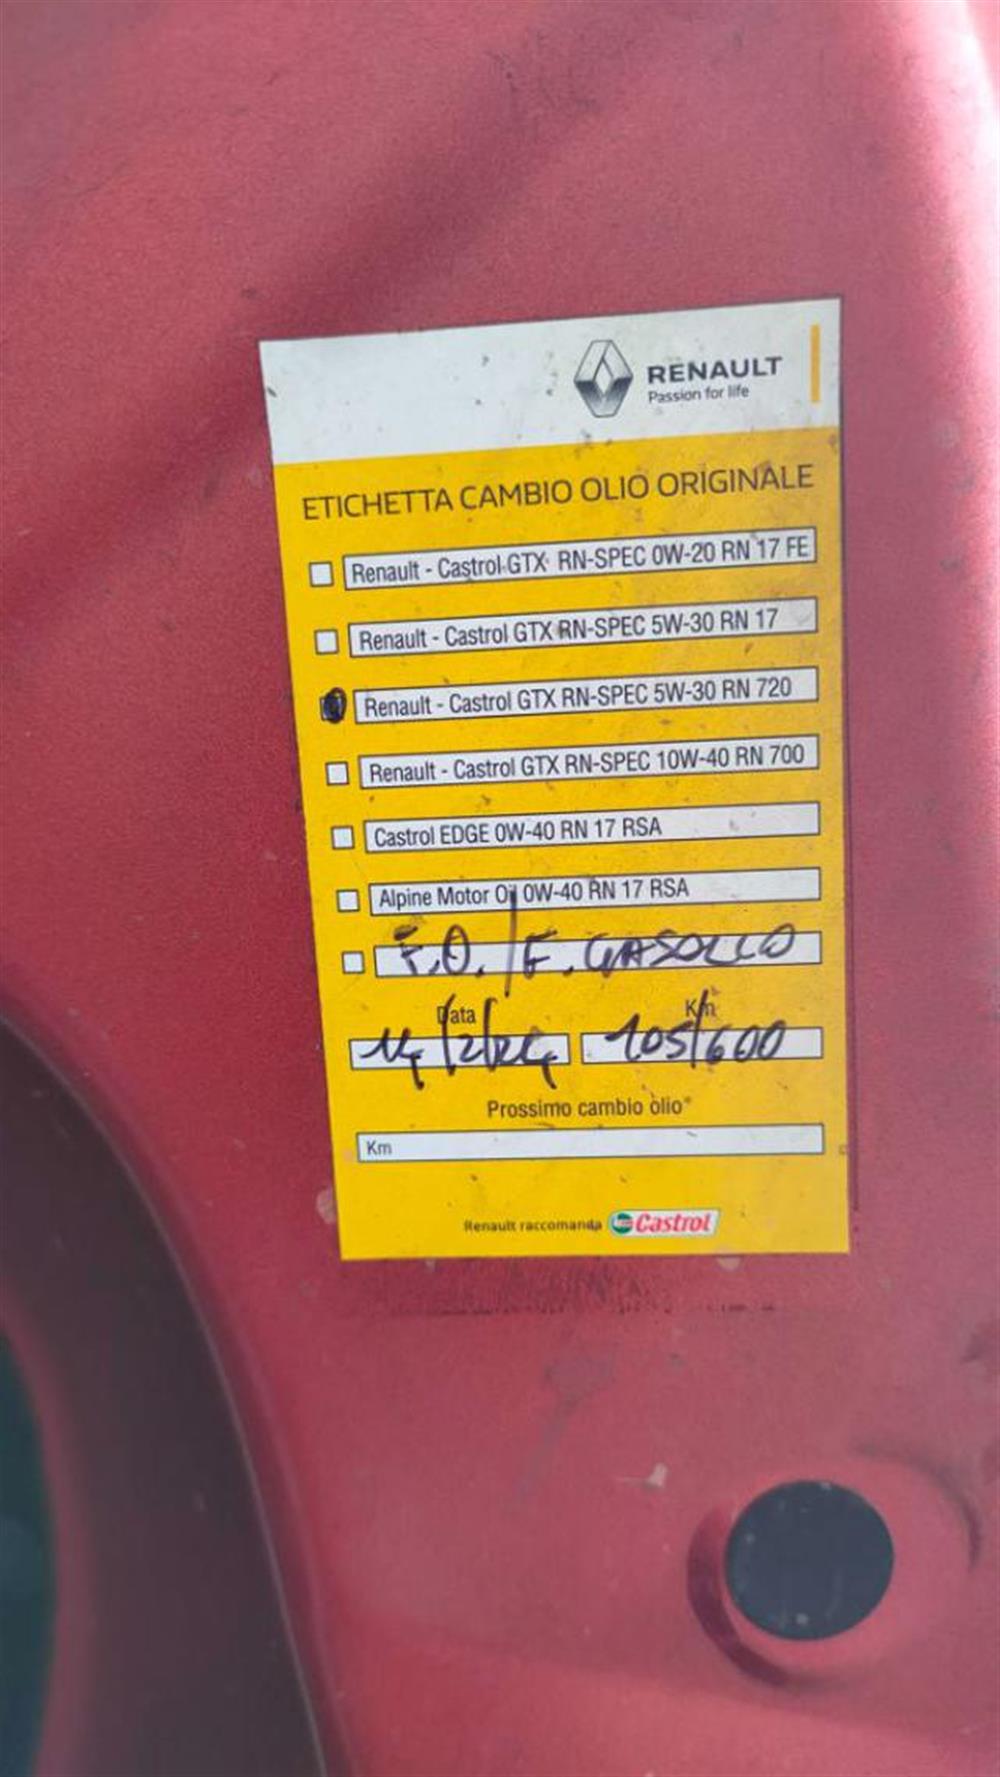 RENAULT
Passion for life
ETICHETTA CAMBIO OLIO ORIGINALE
Renault - Castrol GTX RN-SPEC 0W-20 RN 17 FE
Renault - Castrol GTX RN-SPEC 5W-30 RN 17
Renault - Castrol GTX RN-SPEC 5W-30 RN 720
Renault - Castrol GTX RN-SPEC 10W-40 RN 700
Castrol EDGE 0W-40 RN 17 RSA
Alpine Motor Oil 0W-40 RN 17 RSA
F.O./F. GASOLIO
Data Km
14/2/24 105/600
Prossimo cambio olio*
Km
Renault raccomanda Castrol